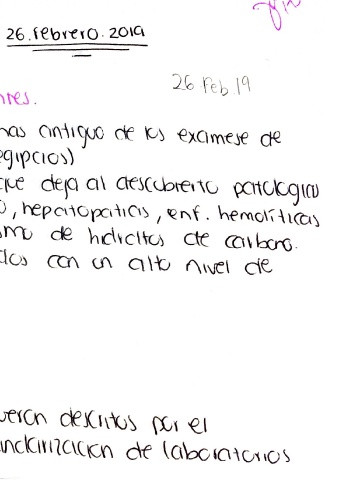 26.Febrero.2019
26 Feb 19
nes.
mas antiguo de los examese de
egipcios)
que deja al descubierto patologias
, hepatopatias, enf. hemolíticas
smo de hidratos de carbono.
dos con un alto nivel de
ueron descritos por el
andarización de laboratorios